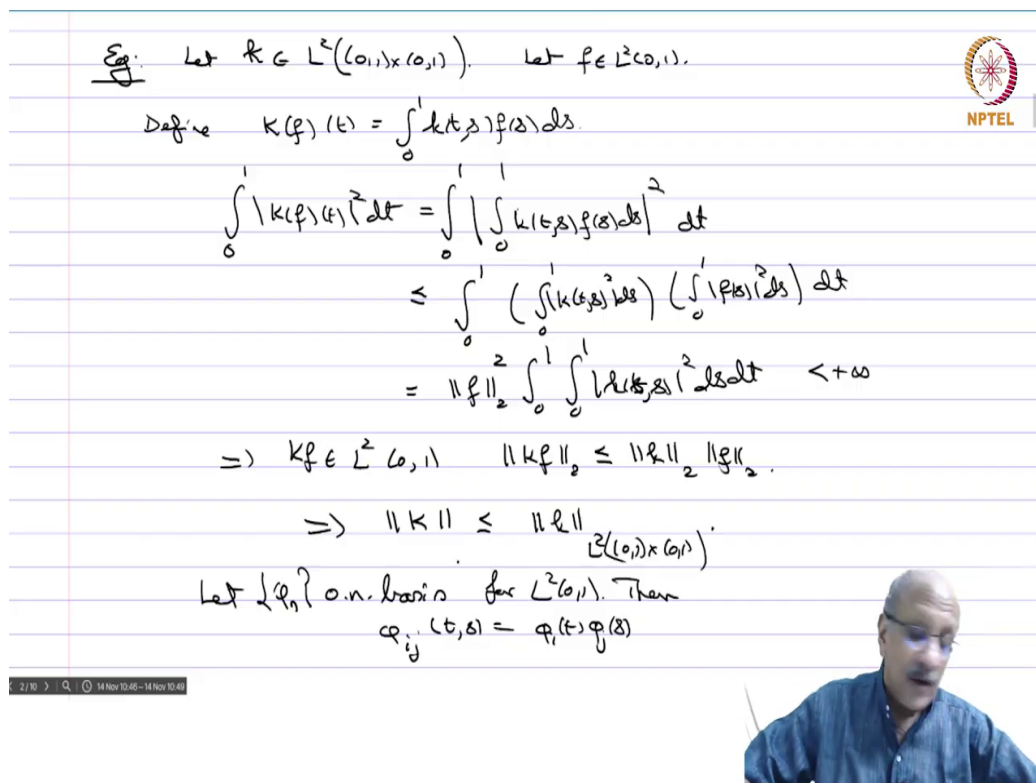 Eg: Let k ∈ L²((0,1)×(0,1)). Let f ∈ L²(0,1).
NPTEL
Define K(f)(t) = ∫₀¹ k(t,s) f(s) ds.
∫₀¹ |K(f)(t)|² dt = ∫₀¹ |∫₀¹ k(t,s) f(s) ds|² dt
≤ ∫₀¹ (∫₀¹ |k(t,s)|² ds) (∫₀¹ |f(s)|² ds) dt
= ‖f‖₂² ∫₀¹ ∫₀¹ |k(t,s)|² ds dt < +∞
=> Kf ∈ L²(0,1) ‖Kf‖₂ ≤ ‖k‖₂ ‖f‖₂.
=> ‖K‖ ≤ ‖k‖_L²((0,1)×(0,1)).
Let {φₙ} o.n. basis for L²(0,1). Then
φᵢⱼ(t,s) = φᵢ(t) φⱼ(s)
2/10 14 Nov 10:46–14 Nov 10:49